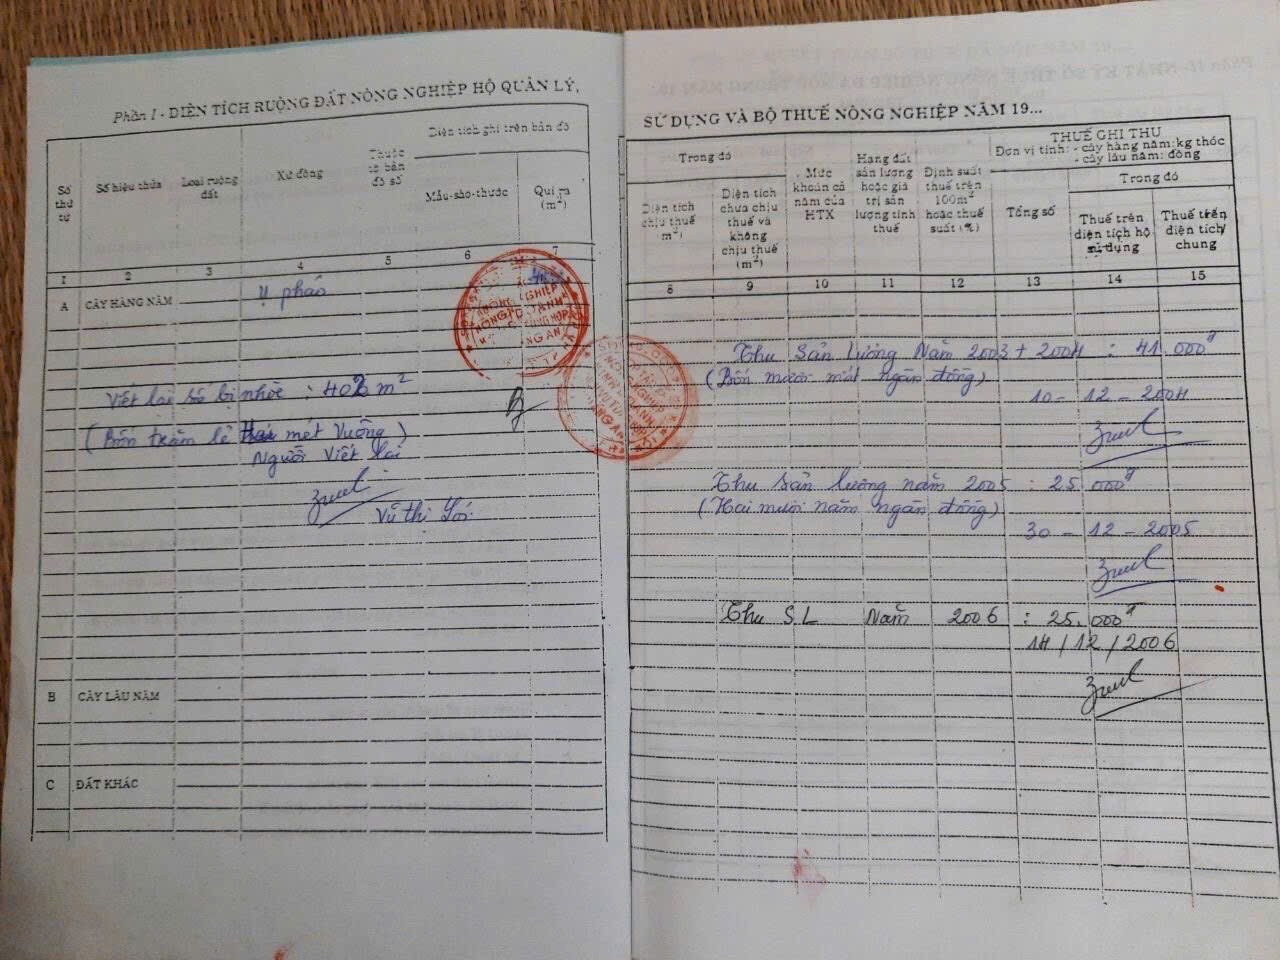 Phần I - DIỆN TÍCH RUỘNG ĐẤT NÔNG NGHIỆP HỘ QUẢN LÝ,
Số thứ tự
Số hiệu thửa
Loại ruộng đất
Xứ đồng
Thuộc tờ bản đồ số
Diện tích ghi trên bản đồ
Mẫu-sào-thước
Qui ra (m²)
1 2 3 4 5 6 7
A CÂY HÀNG NĂM
Viết lại số bị nhòe : 402 m²
(Bốn trăm lẻ hai mét vuông)
Người Viết lại
Vũ thị
B CÂY LÂU NĂM
C ĐẤT KHÁC
SỬ DỤNG VÀ BỘ THUẾ NÔNG NGHIỆP NĂM 19...
Trong đó
Diện tích chịu thuế m²)
Diện tích chưa chịu thuế và không chịu thuế (m²)
Mức khoán cả năm của HTX
Hạng đất sản lượng hoặc giá trị sản lượng tính thuế
Định suất thuế trên 100m² hoặc thuế suất (%)
THUẾ GHI THU
Đơn vị tính: - cây hàng năm: kg thóc
- cây lâu năm: đồng
Tổng số
Trong đó
Thuế trên diện tích hộ sử dụng
Thuế trên diện tích chung
8 9 10 11 12 13 14 15
Thu Sản lượng Năm 2003 + 2004 : 41.000đ
(Bốn mươi mốt ngàn đồng)
10 - 12 - 2004
Thu Sản lượng năm 2005 : 25.000đ
(Hai mươi năm ngàn đồng)
30 - 12 - 2005
Thu SL Năm 2006 : 25.000đ
14/12/2006